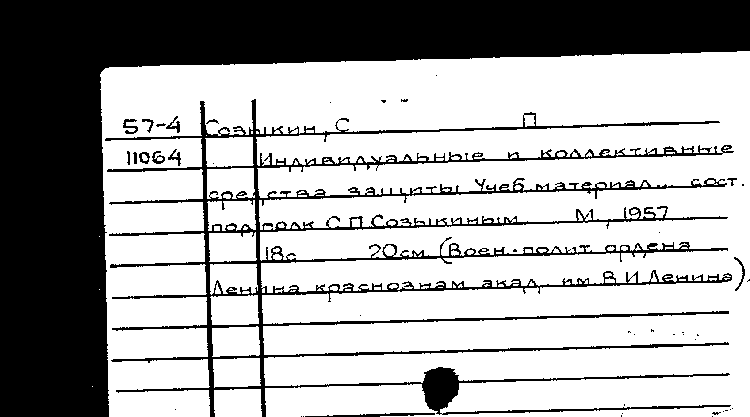 57-4 Созыкин, С П
11064 Индивидуальные и коллективные
средства защиты Учеб. материал... сост.
подполк С.П. Созыкиным М, 1957
18с 20см (Воен.-полит. ордена
Ленина краснознам акад. им. В.И.Ленина).